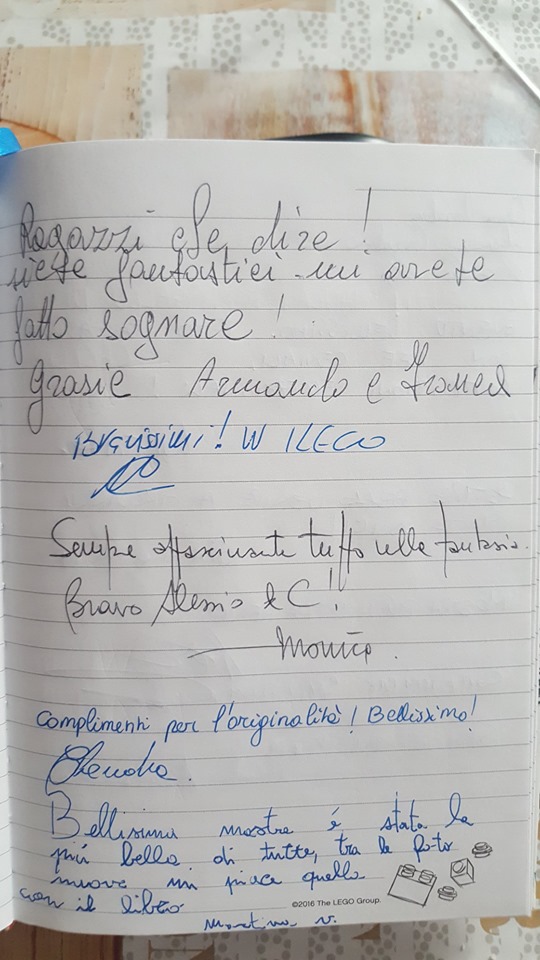 Ragazzi che dire!
siete fantastici mi avete
fatto sognare!
grazie Armando e
Bravissimi! W I LEGO
Sempre affascinante tuffo nella fantasia.
Bravo Alessio & C!
Monica.
Complimenti per l'originalità! Bellissimo!
Claudia.
Bellissima mostra é stata la
più bella di tutte, tra le foto
nuove mi piace quella
con il libro
Martina V.
©2016 The LEGO Group.